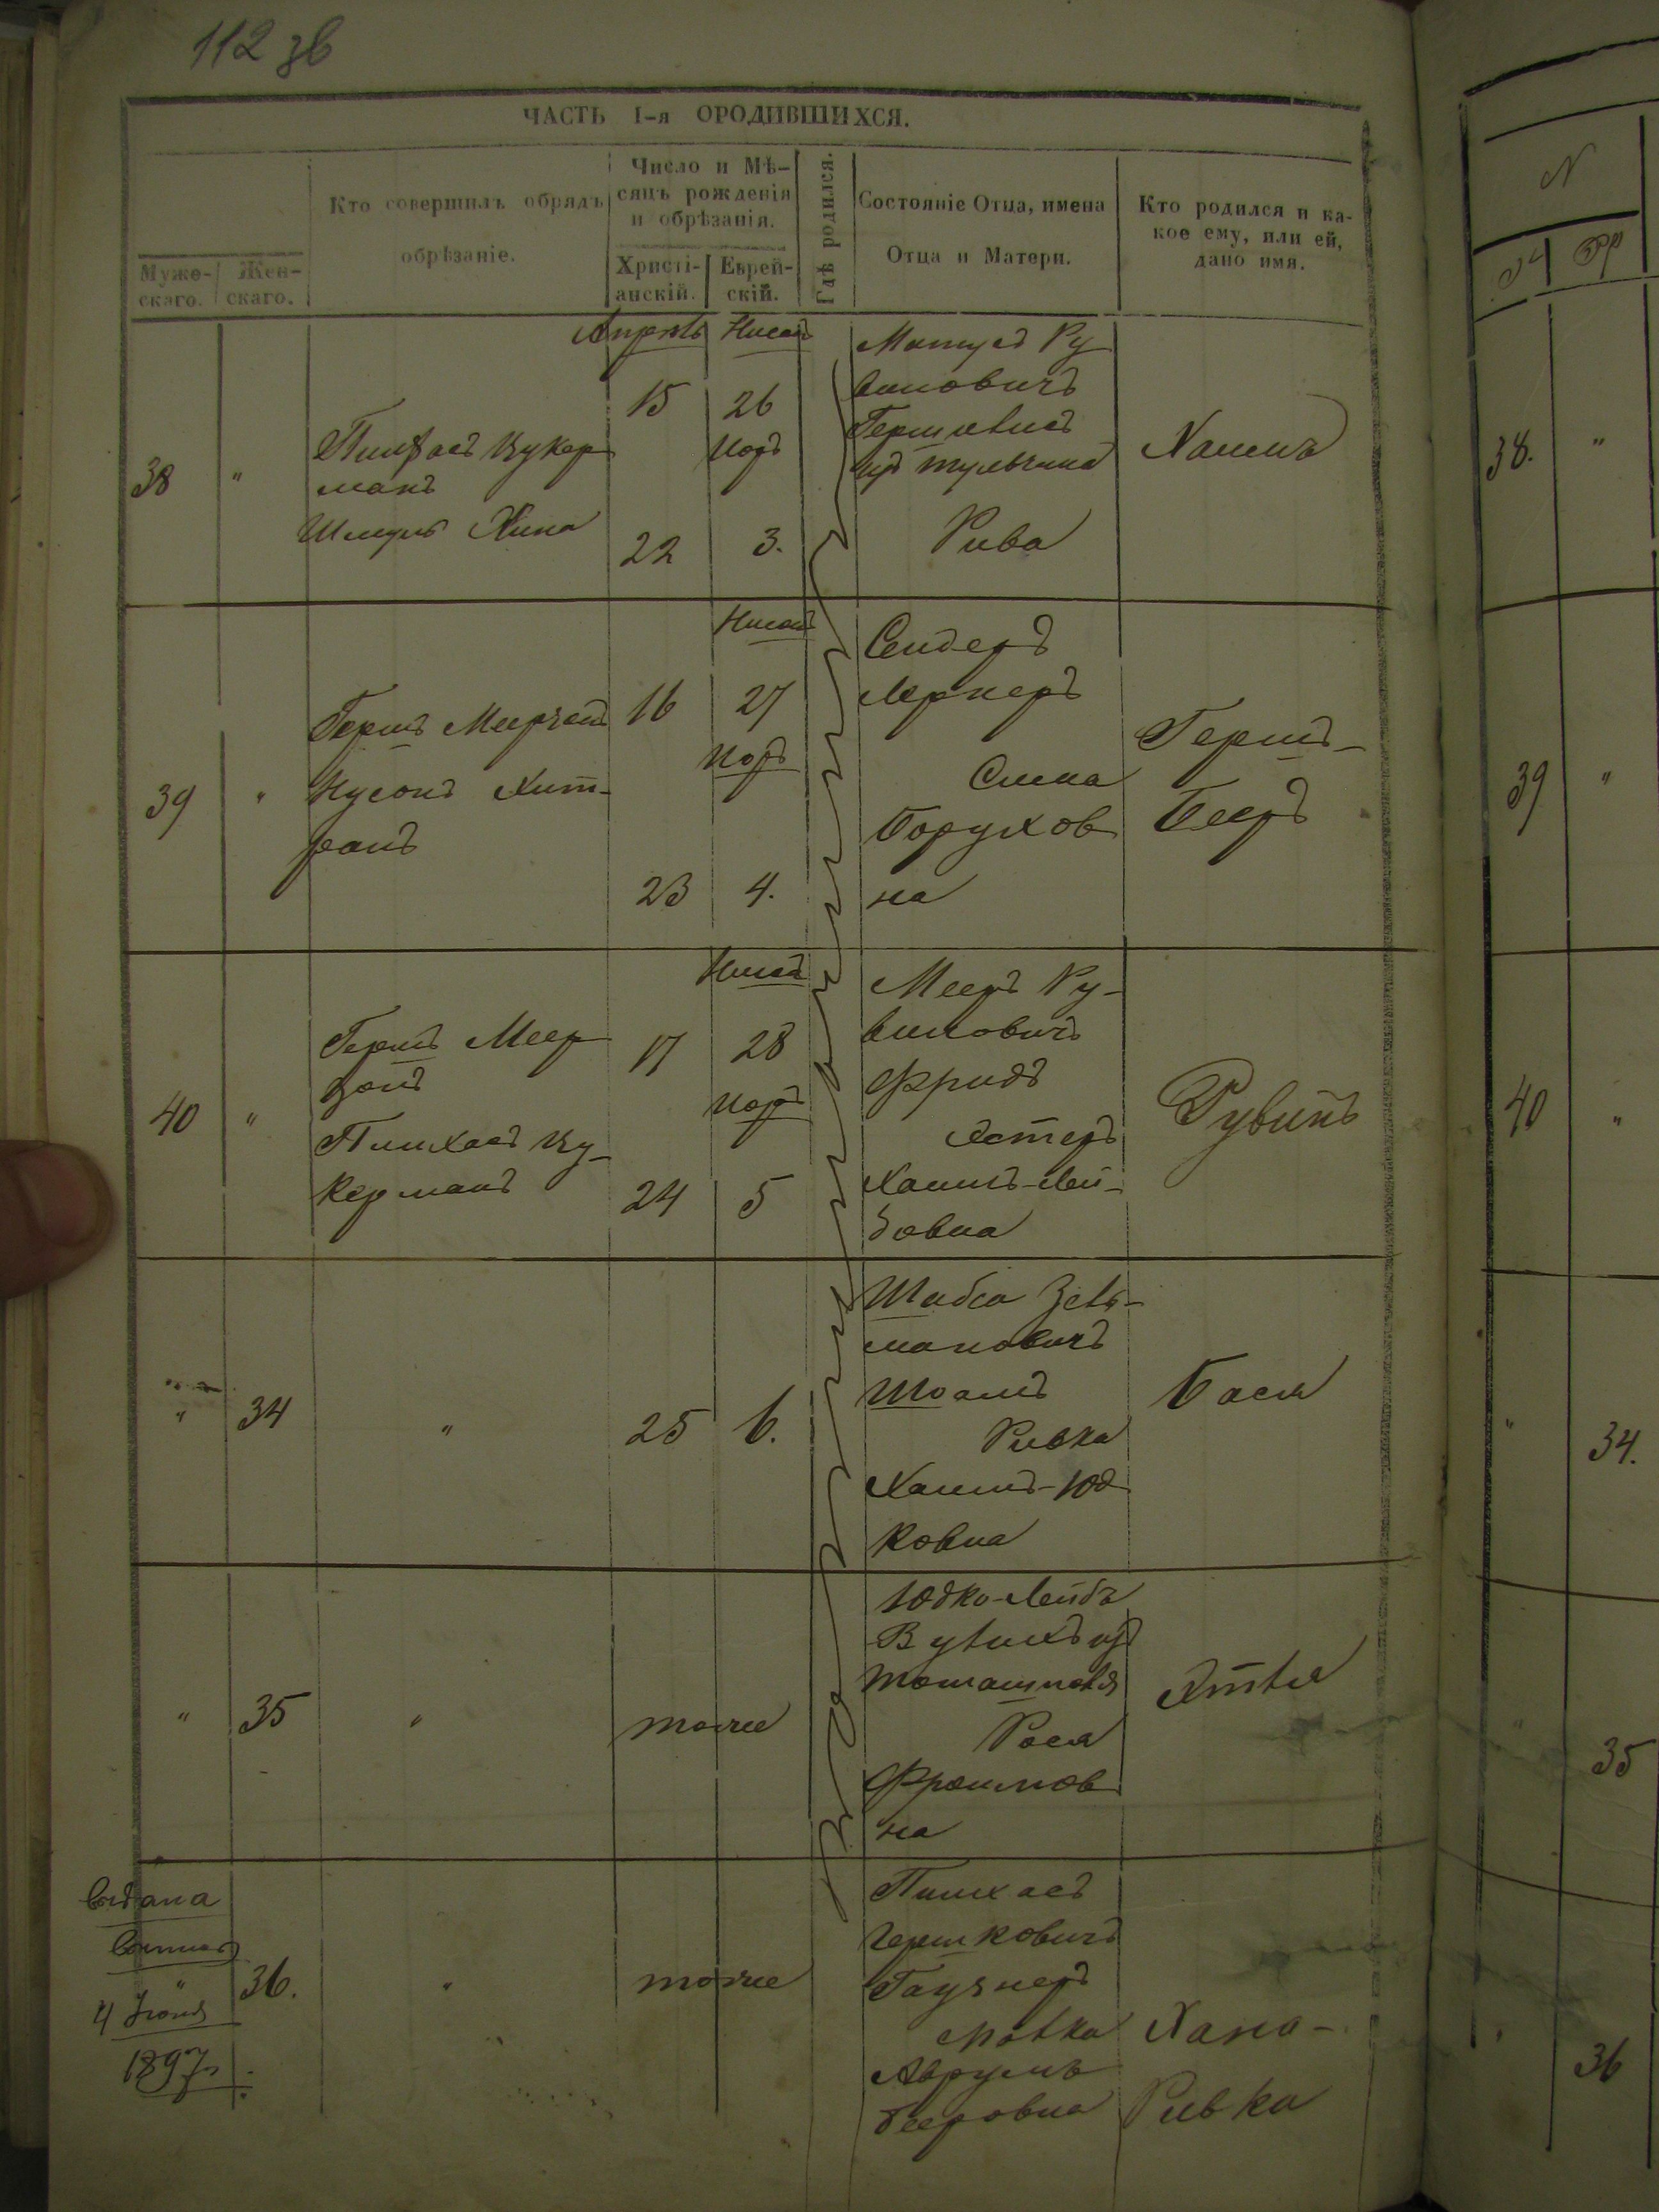 112 зв
ЧАСТЬ I-я ОРОДИВШИХСЯ.
Муже-
скаго.
Жен-
скаго.
Кто совершилъ обрядъ
обрѣзаніе.
Число и Мѣ-
сяцъ рожденія
и обрѣзанія.
Христі-
анскій.
Еврей-
скій.
Гдѣ родился.
Состояніе Отца, имена
Отца и Матери.
Кто родился и ка-
кое ему, или ей,
дано имя.
38
"
Пинхасъ Цукер
манъ
Шмуль Хина
Апрель
15
22
Нисанъ
26
Иоръ
3.
Матусъ Ру
виновичъ
изъ Тульчина
Рива
Хаимъ
39
"
Гершъ
Нусонъ Хит-
ранъ
16
23
Нисанъ
27
Иоръ
4.
Сендеръ
Лернеръ
Сима
Борухов
на
Гершъ-
Беръ
40
"
Гершъ Меер
зонъ
Пинхасъ Цу-
керманъ
17
24
Нисанъ
28
Иоръ
5
Мееръ Ру-
виновичъ
Фридъ
Эстеръ
Хаимъ-Лей-
бовна
Рувинъ
"
34
"
25
6.
Шабса Зель-
мановичъ
Ривка
Хаимъ-Юд
ковна
Бася
"
35
"
тоже
Юдко-Лейбъ
изъ
Томашполя
Рося
Фроимов
на
Этля
выдана
"
4 Июня
1897
36.
"
тоже
Пинхасъ
Гершковичъ
Аврумъ
Беровна
Хана-
Ривка
N
38.
"
39
"
40
"
"
34.
35
36